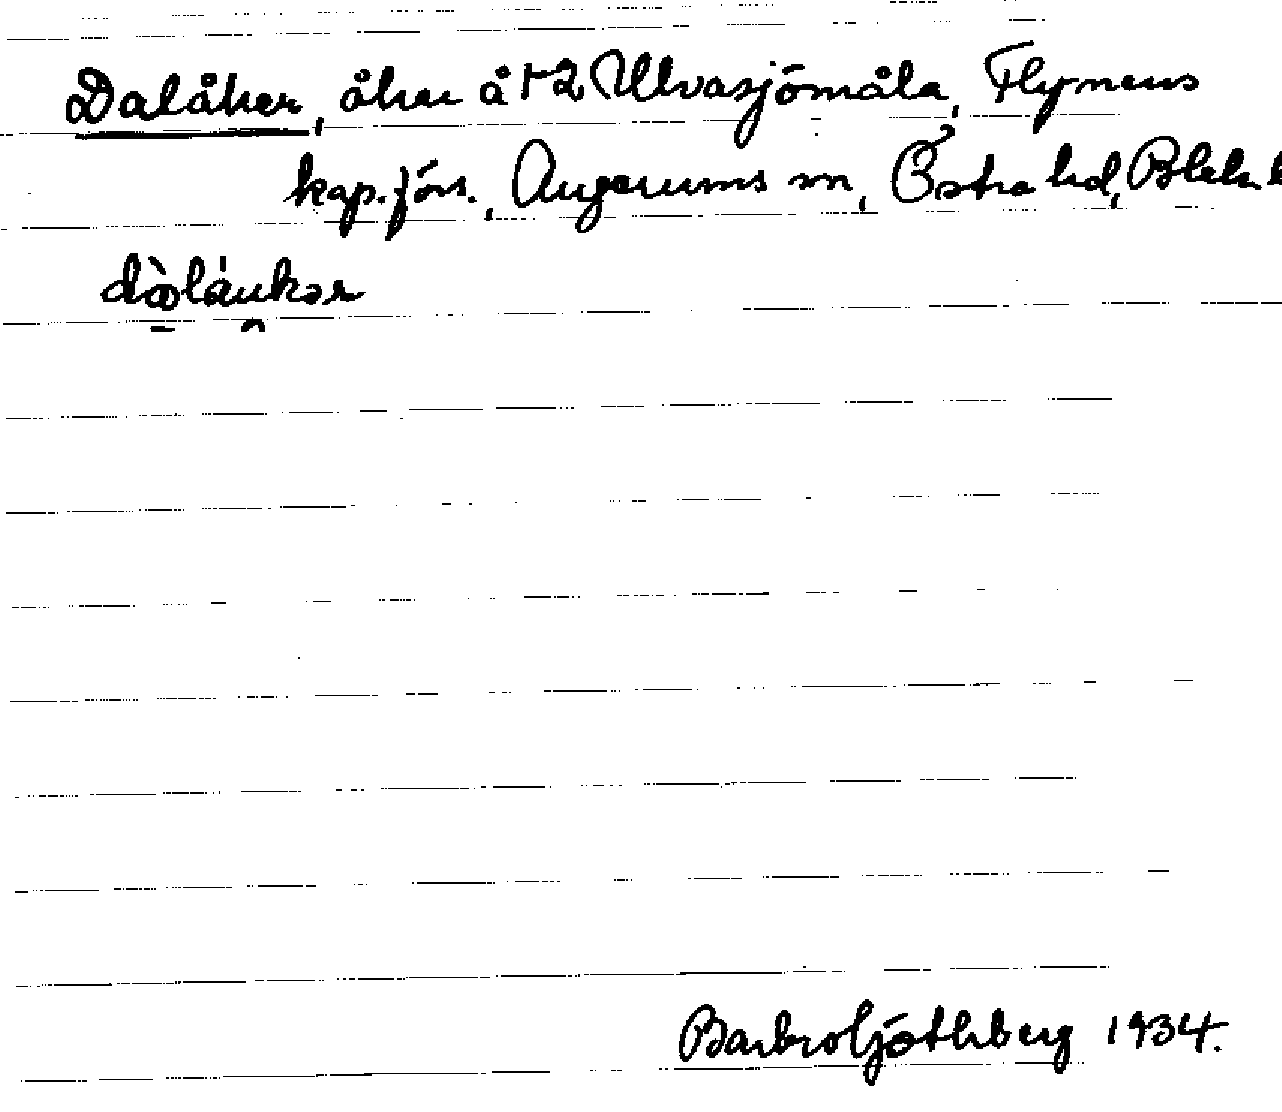 Dalåker, åker å 1-2 Ulvasjömåla, Flymens
kap.förs., Augerums sn, Östra hd, Blek
Barbro Göthberg 1934.